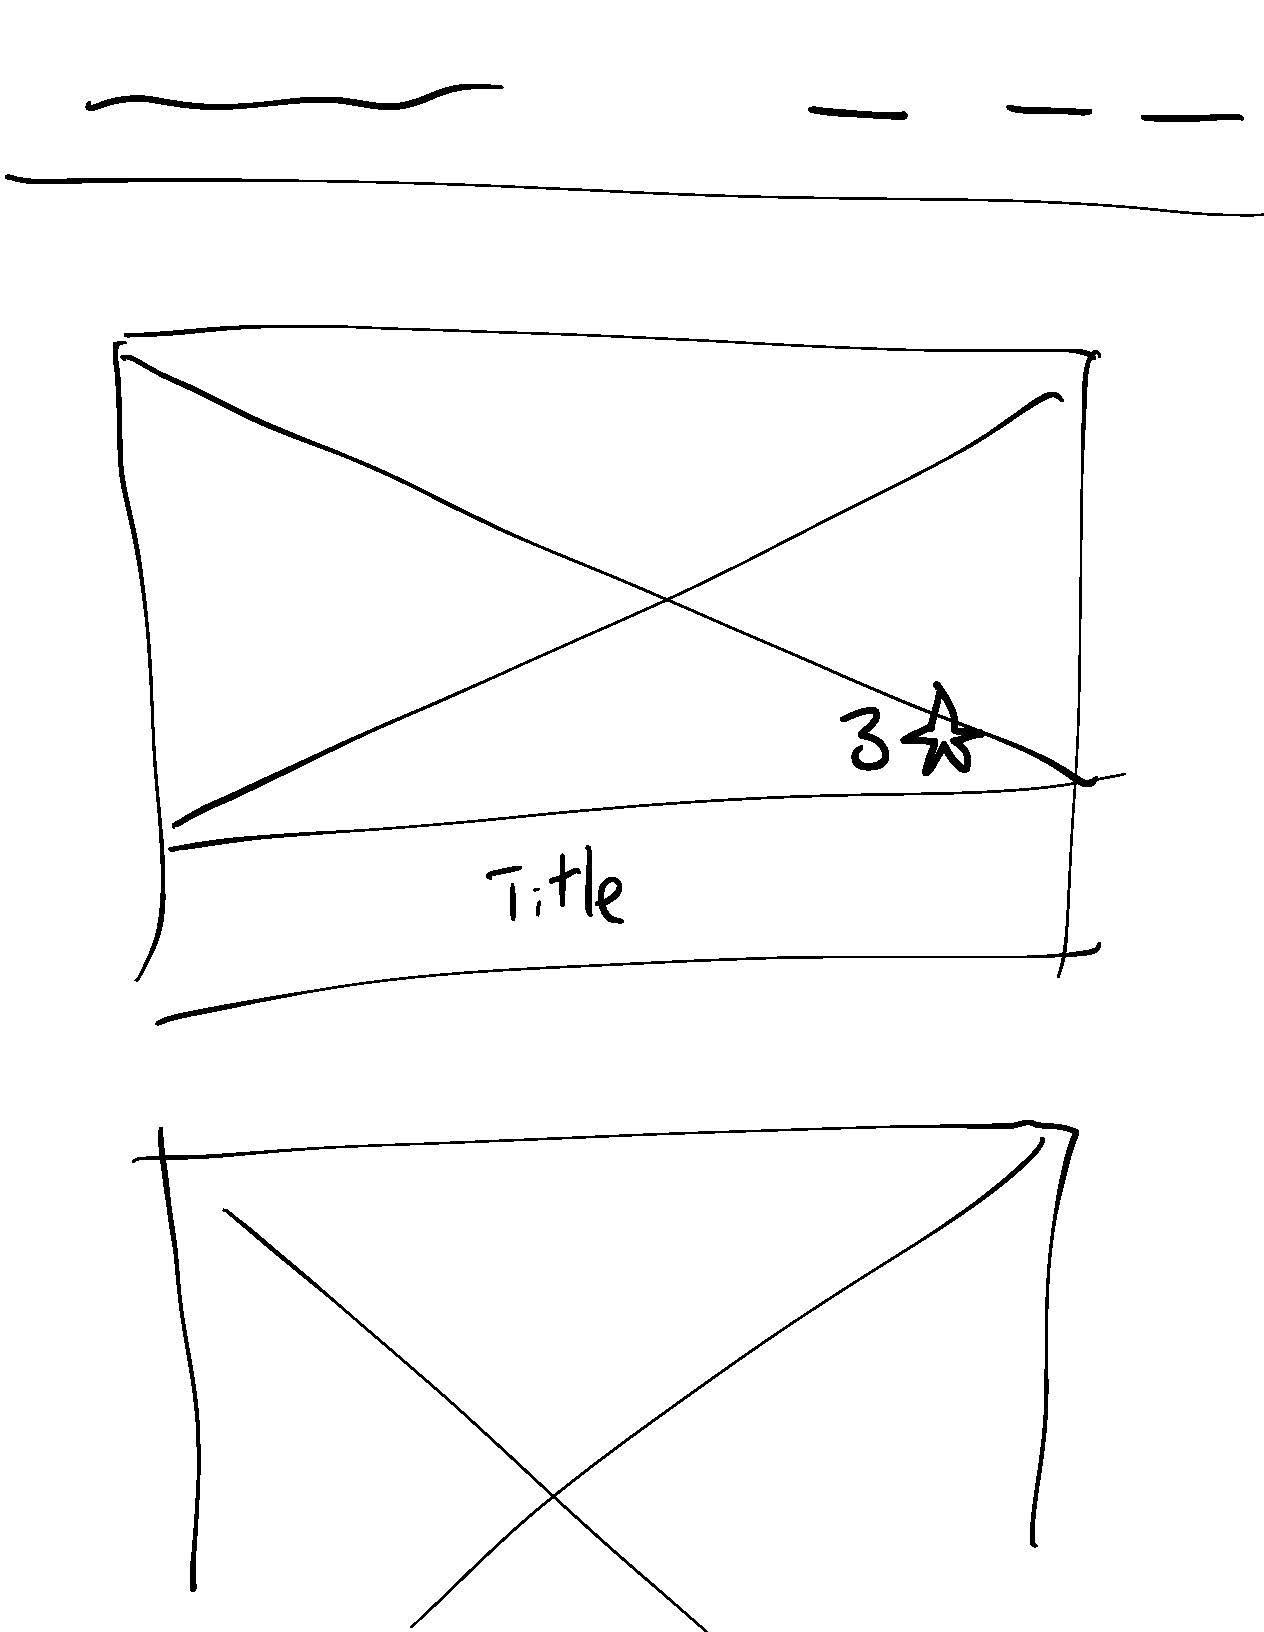 3
Title